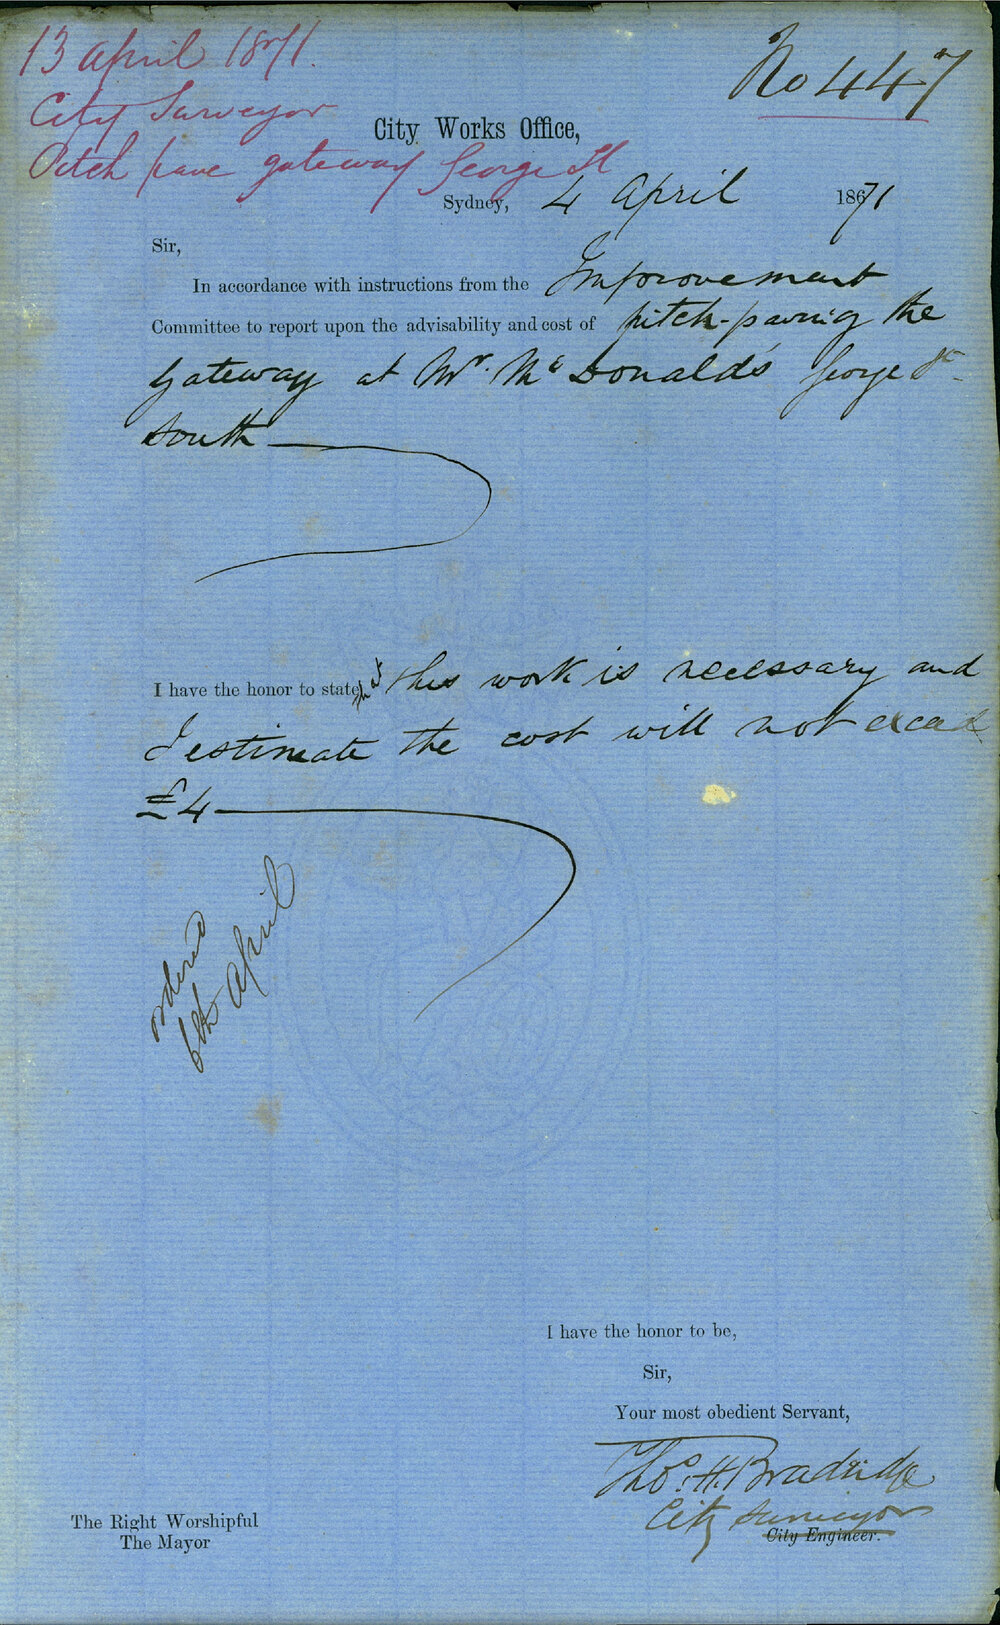 13 April 1871.
No 447
City Surveyor
City Works Office,
Pitch pave gateway George St
Sydney, 4 April 1871
Sir,
In accordance with instructions from the Improvement
Committee to report upon the advisability and cost of pitch-paving the
gateway at Mr. McDonald's George St
South
I have the honor to state that this work is necessary and
I estimate the cost will not exceed
£4
ordered
6th April
I have the honor to be,
Sir,
Your most obedient Servant,
Thos. H. Bradridge
City Surveyor
City Engineer.
The Right Worshipful
The Mayor